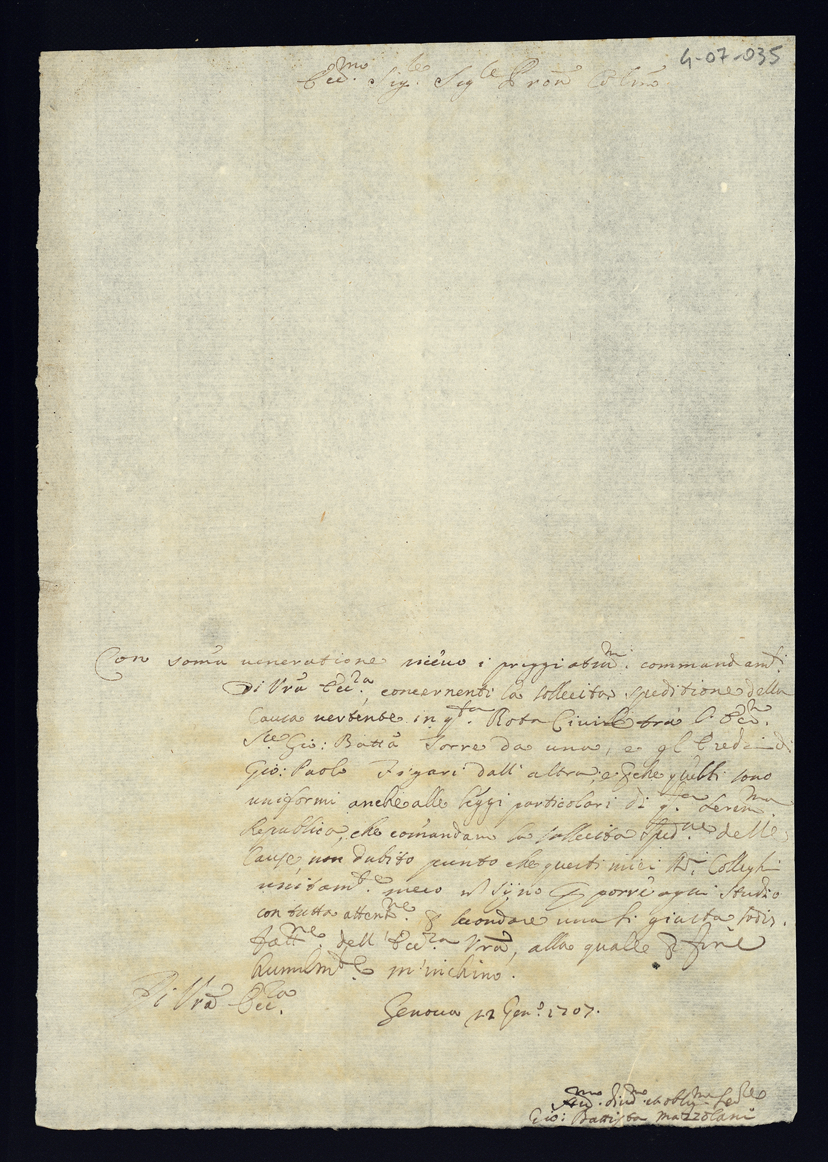 4-07-035
Ecc.mo Sig.re Sig.re Pron Col.mo
Con som̃a veneratione ricevo i preggiatiss.mi commandam.ti
Di Vrã Ecc.za, concernenti la sollecita speditione della
Causa vertente in q.sta Rota Civile trà l'Ecc.mo
Gio: Battã Torre da una, e gl'Eredi di
Gio: Paolo Figari dall'altra, e perche sono
uniformi anche alle leggi particolari di q.sta Seren.ma
Republica, che com̃andano la sollecita sped.ne delle
Cause, non dubito punto che questi miei Colleghi
unitam.te meco siino per porre ogni studio
con tutta attent.ne per secondare una si giusta sodis-
fatt.ne dell'Ecc.za Vrã, alla qualle per fine
humilm.te m'inchino.
Di Vrã Ecc.za
Genova 12 Gen.o 1707.
Gio: Battista Mazzolani